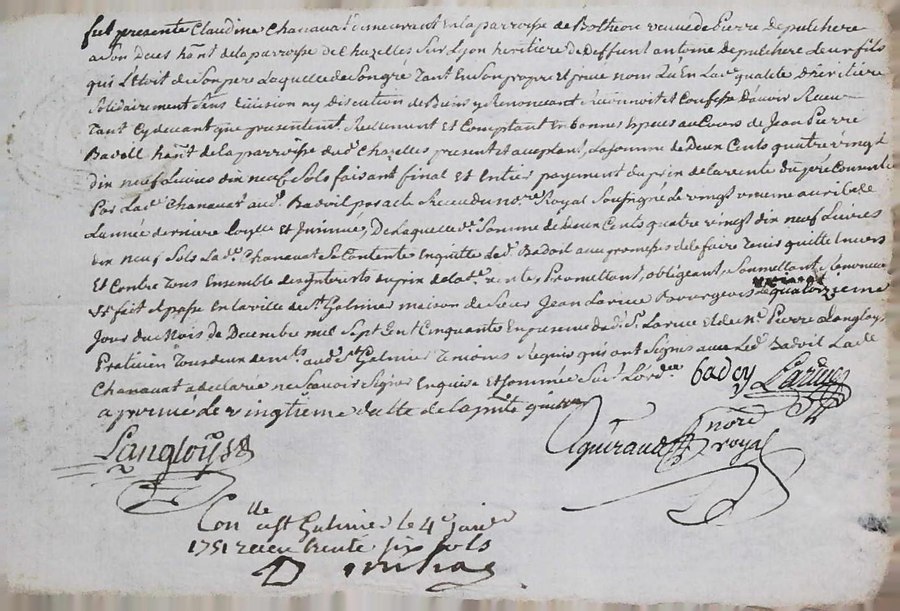 fut presente Claudine Chanauat demeurant en la parroisse de Botheon veuve de Pierre depulchere
a son deces hant de la parroisse de Chazelles sur Lyon heritiere de deffunt antoine depulchere leur fils
qui letoit de son pere laquelle de son gré tant en son propre et privé nom qu'en lad. qualité d'heritiere
solidairement sans division ny discution de biens y Renonceant Reconnoit et Confesse d'avoir Receu
tant cy devant que presentent. Reellement et Comptant en bonnes Especes au Cours de Jean Pierre
Badoil hant de la parroisse dud. Chazelles present et acceptant, La somme de Deux Cents quatre vingt
dix neuf Livres dix neuf sols faisant final et Entier payement du prix de la vente du pré Consentie
Par lad. Chanauat aud. Badoil par acte Receu du no.re Royal Soussigné le vingt uneme avril de
L'année derniere et Insinué, De laquelle d. Somme de Deux Cents quatre vingt dix neuf Livres
dix neuf Sols Lad. Chanauat Se Contente En quitte led. Badoil aux promesses de le faire tenir quitte Envers
Et Contre tous Ensemble des Interests du prix de lad. vente, Promettant, obligeant, Soumettant, Renonceant
fait & passé en la ville de St Galmier maison de Sieur Jean Larue Bourgeois le quatorzeme
Jour du Mois de Decembre mil Sept Cent Cinquante En presence dud. Sr Larue et de Me Pierre Langloys
Praticien tous deux aud. St Galmier temoins Requis qui ont Signés avec Led. Badoil Lad.
Chanauat a declarée ne Scavoir Signer Enquise Et Sommée Sur.
a primé le vingtieme
badoy Larue
Langloys
nord
royal
Con.lle a St Galmier le 4e janier
1751 receu trente six sols